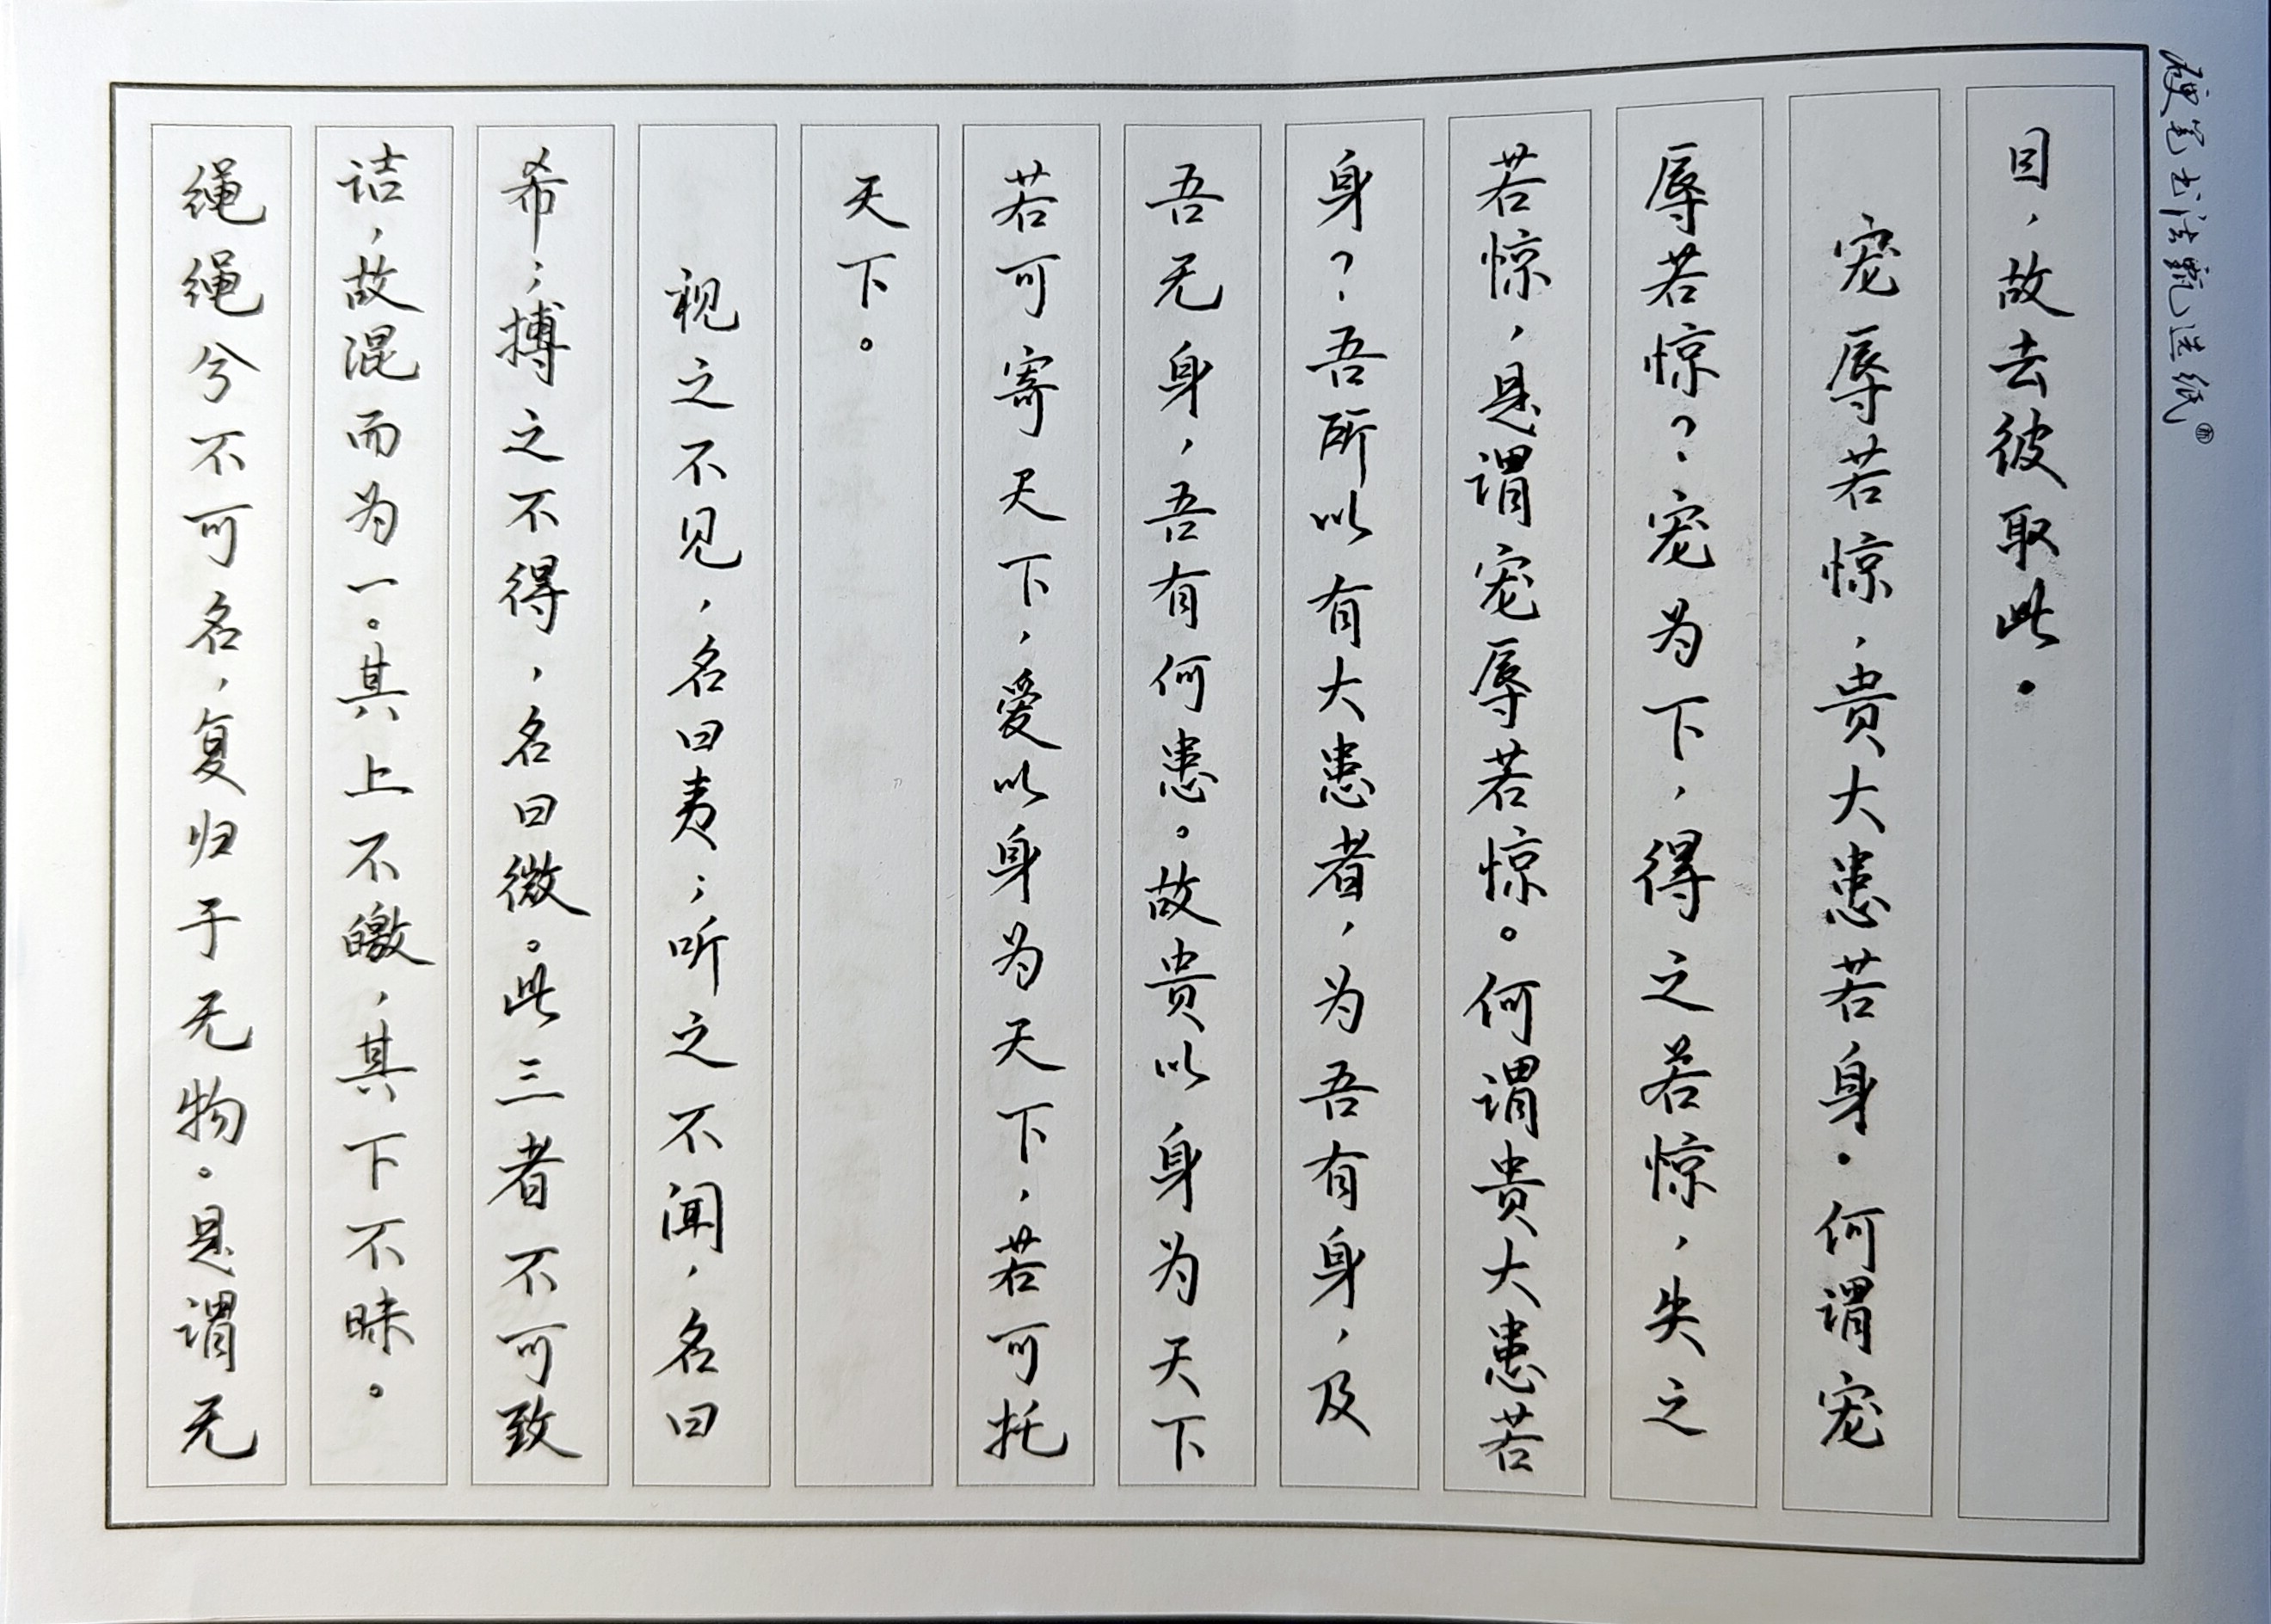 硬笔书法甄选纸
目，故去彼取此。
宠辱若惊，贵大患若身。何谓宠
辱若惊？宠为下，得之若惊，失之
若惊，是谓宠辱若惊。何谓贵大患若
身？吾所以有大患者，为吾有身，及
吾无身，吾有何患。故贵以身为天下
若可寄天下，爱以身为天下，若可托
天下。
视之不见，名曰夷；听之不闻，名曰
希；搏之不得，名曰微。此三者不可致
诘，故混而为一。其上不皦，其下不昧。
绳绳兮不可名，复归于无物。是谓无